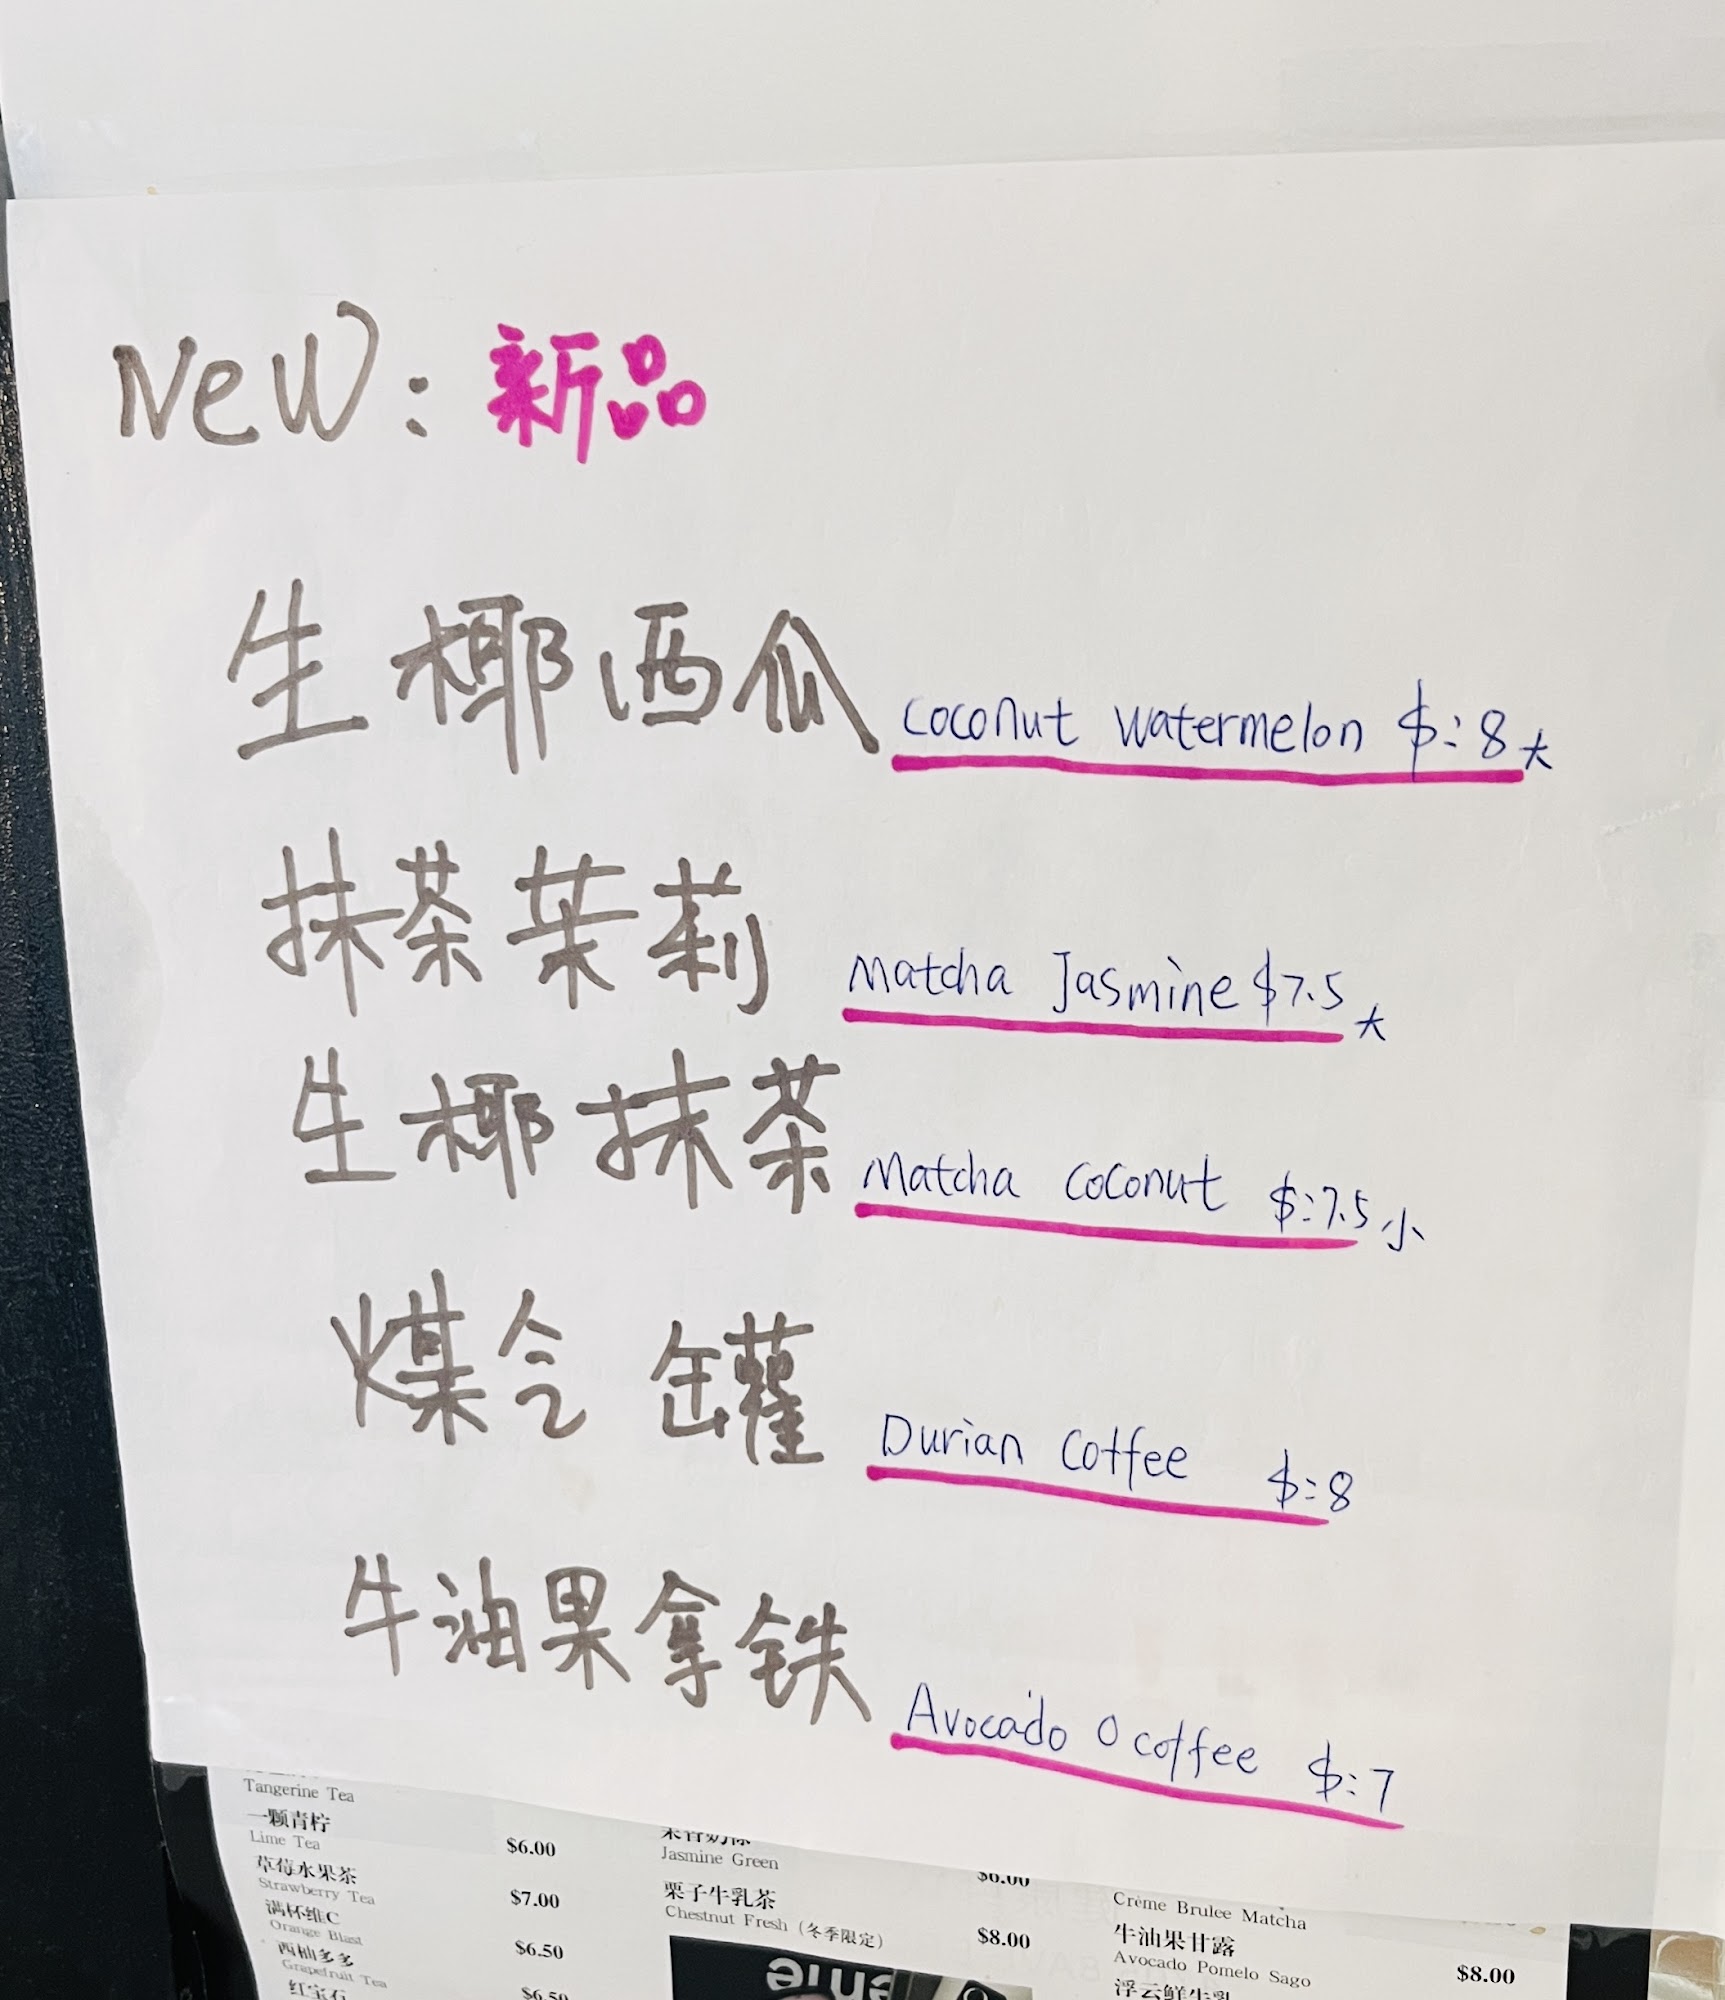 New: 新品
生椰西瓜 coconut watermelon $:8大
抹茶茉莉 Matcha Jasmine $7.5大
生椰抹茶 Matcha coconut $:7.5小
煤气罐 Durian Coffee $:8
牛油果拿铁 Avocado O coffee $:7
Tangerine Tea
一颗青柠
Lime Tea $6.00
草莓水果茶
Strawberry Tea $7.00
满杯维C
Orange Blast $6.50
西柚多多
Grapefruit Tea $6.50
红宝石
Jasmine Green $6.00
栗子牛乳茶
Chestnut Fresh (冬季限定) $8.00
Crème Brulee Matcha
牛油果甘露
Avocado Pomelo Sago $8.00
浮云鲜牛乳